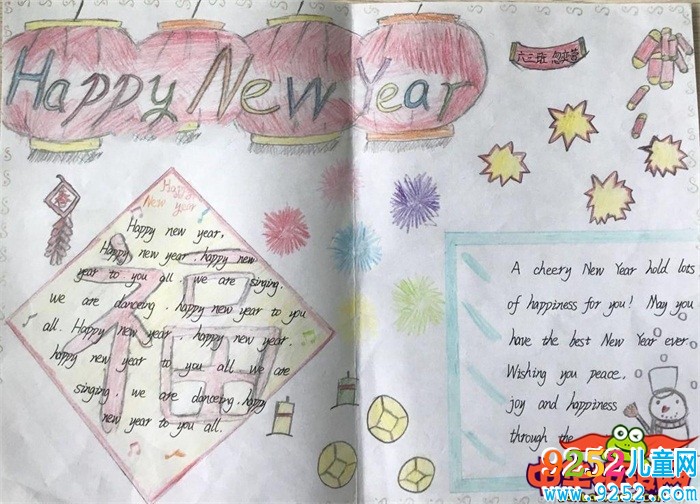 Happy New Year
六三班
Happy
New year
Happy new year.
Happy new year. happy new
year to you all. we are singing.
we are danceing. happy new year to you
all. Happy new year. happy new year.
happy new year to you all we are
singing. we are danceing. happy
new year to you all.
福
A cheery New Year hold lots
of happiness for you! May you
have the best New Year ever.
Wishing you peace,
joy and happiness
through the
9252儿童网
www.9252.com